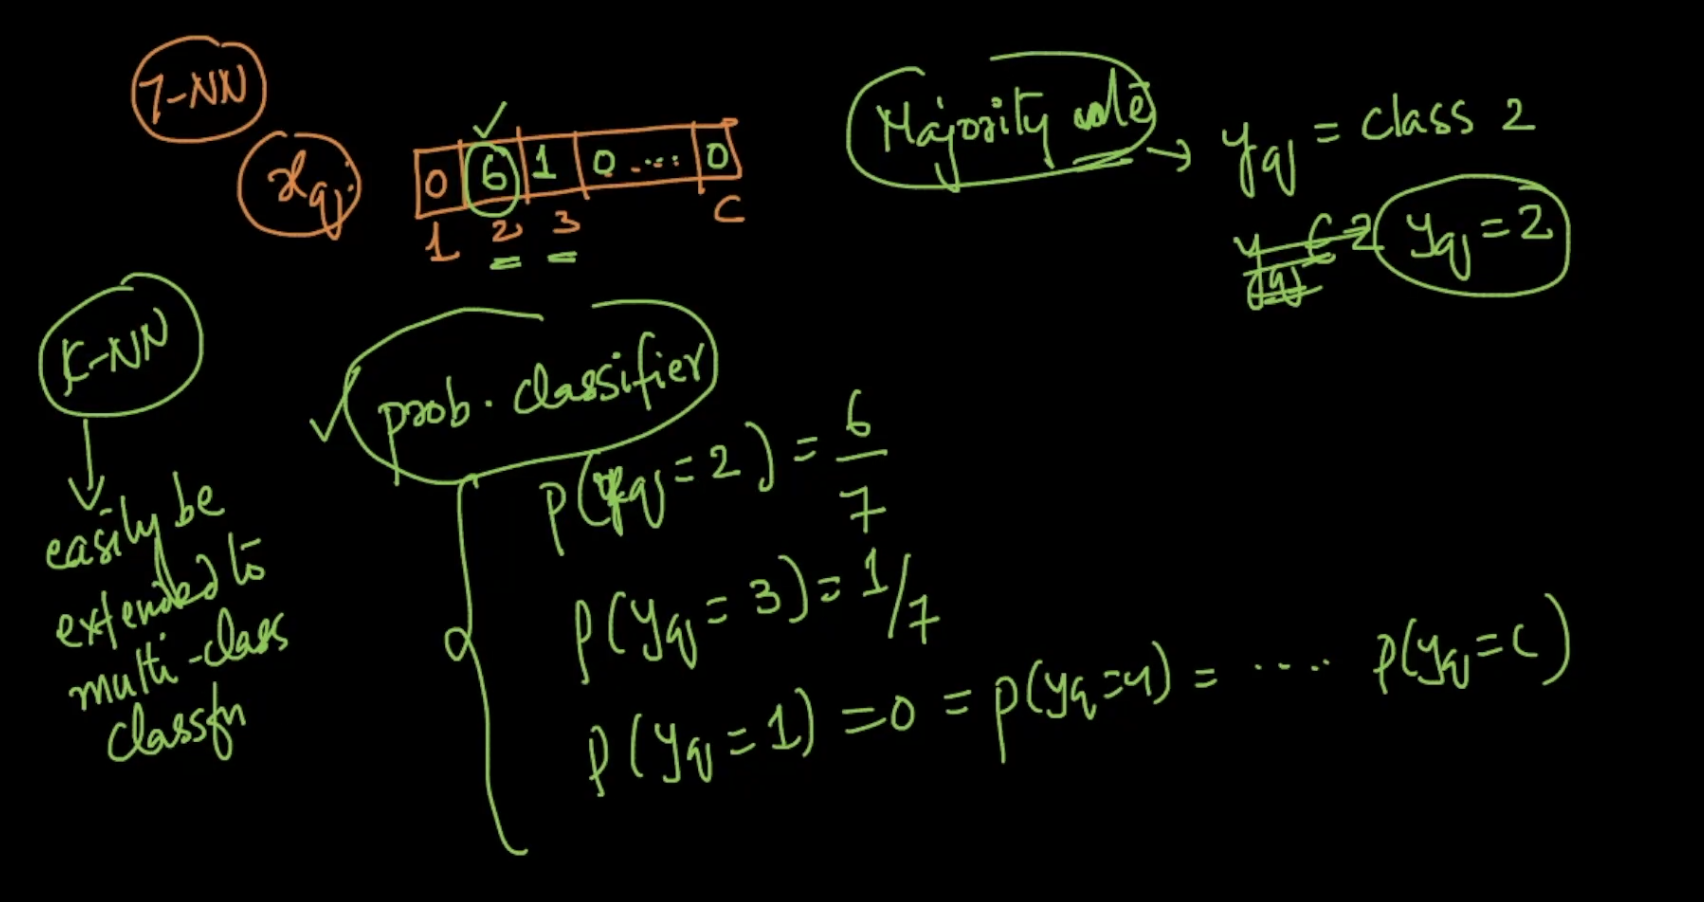 7-NN
xq
0 6 1 0 .... 0
1 2 3 C
Majority vote → yq = class 2
yq = 2
K-NN
easily be
extended to
multi-class
classfn
prob. classifier
P(yq = 2) = 6/7
P(yq = 3) = 1/7
P(yq = 1) = 0 = P(yq = 4) = .... P(yq = C)